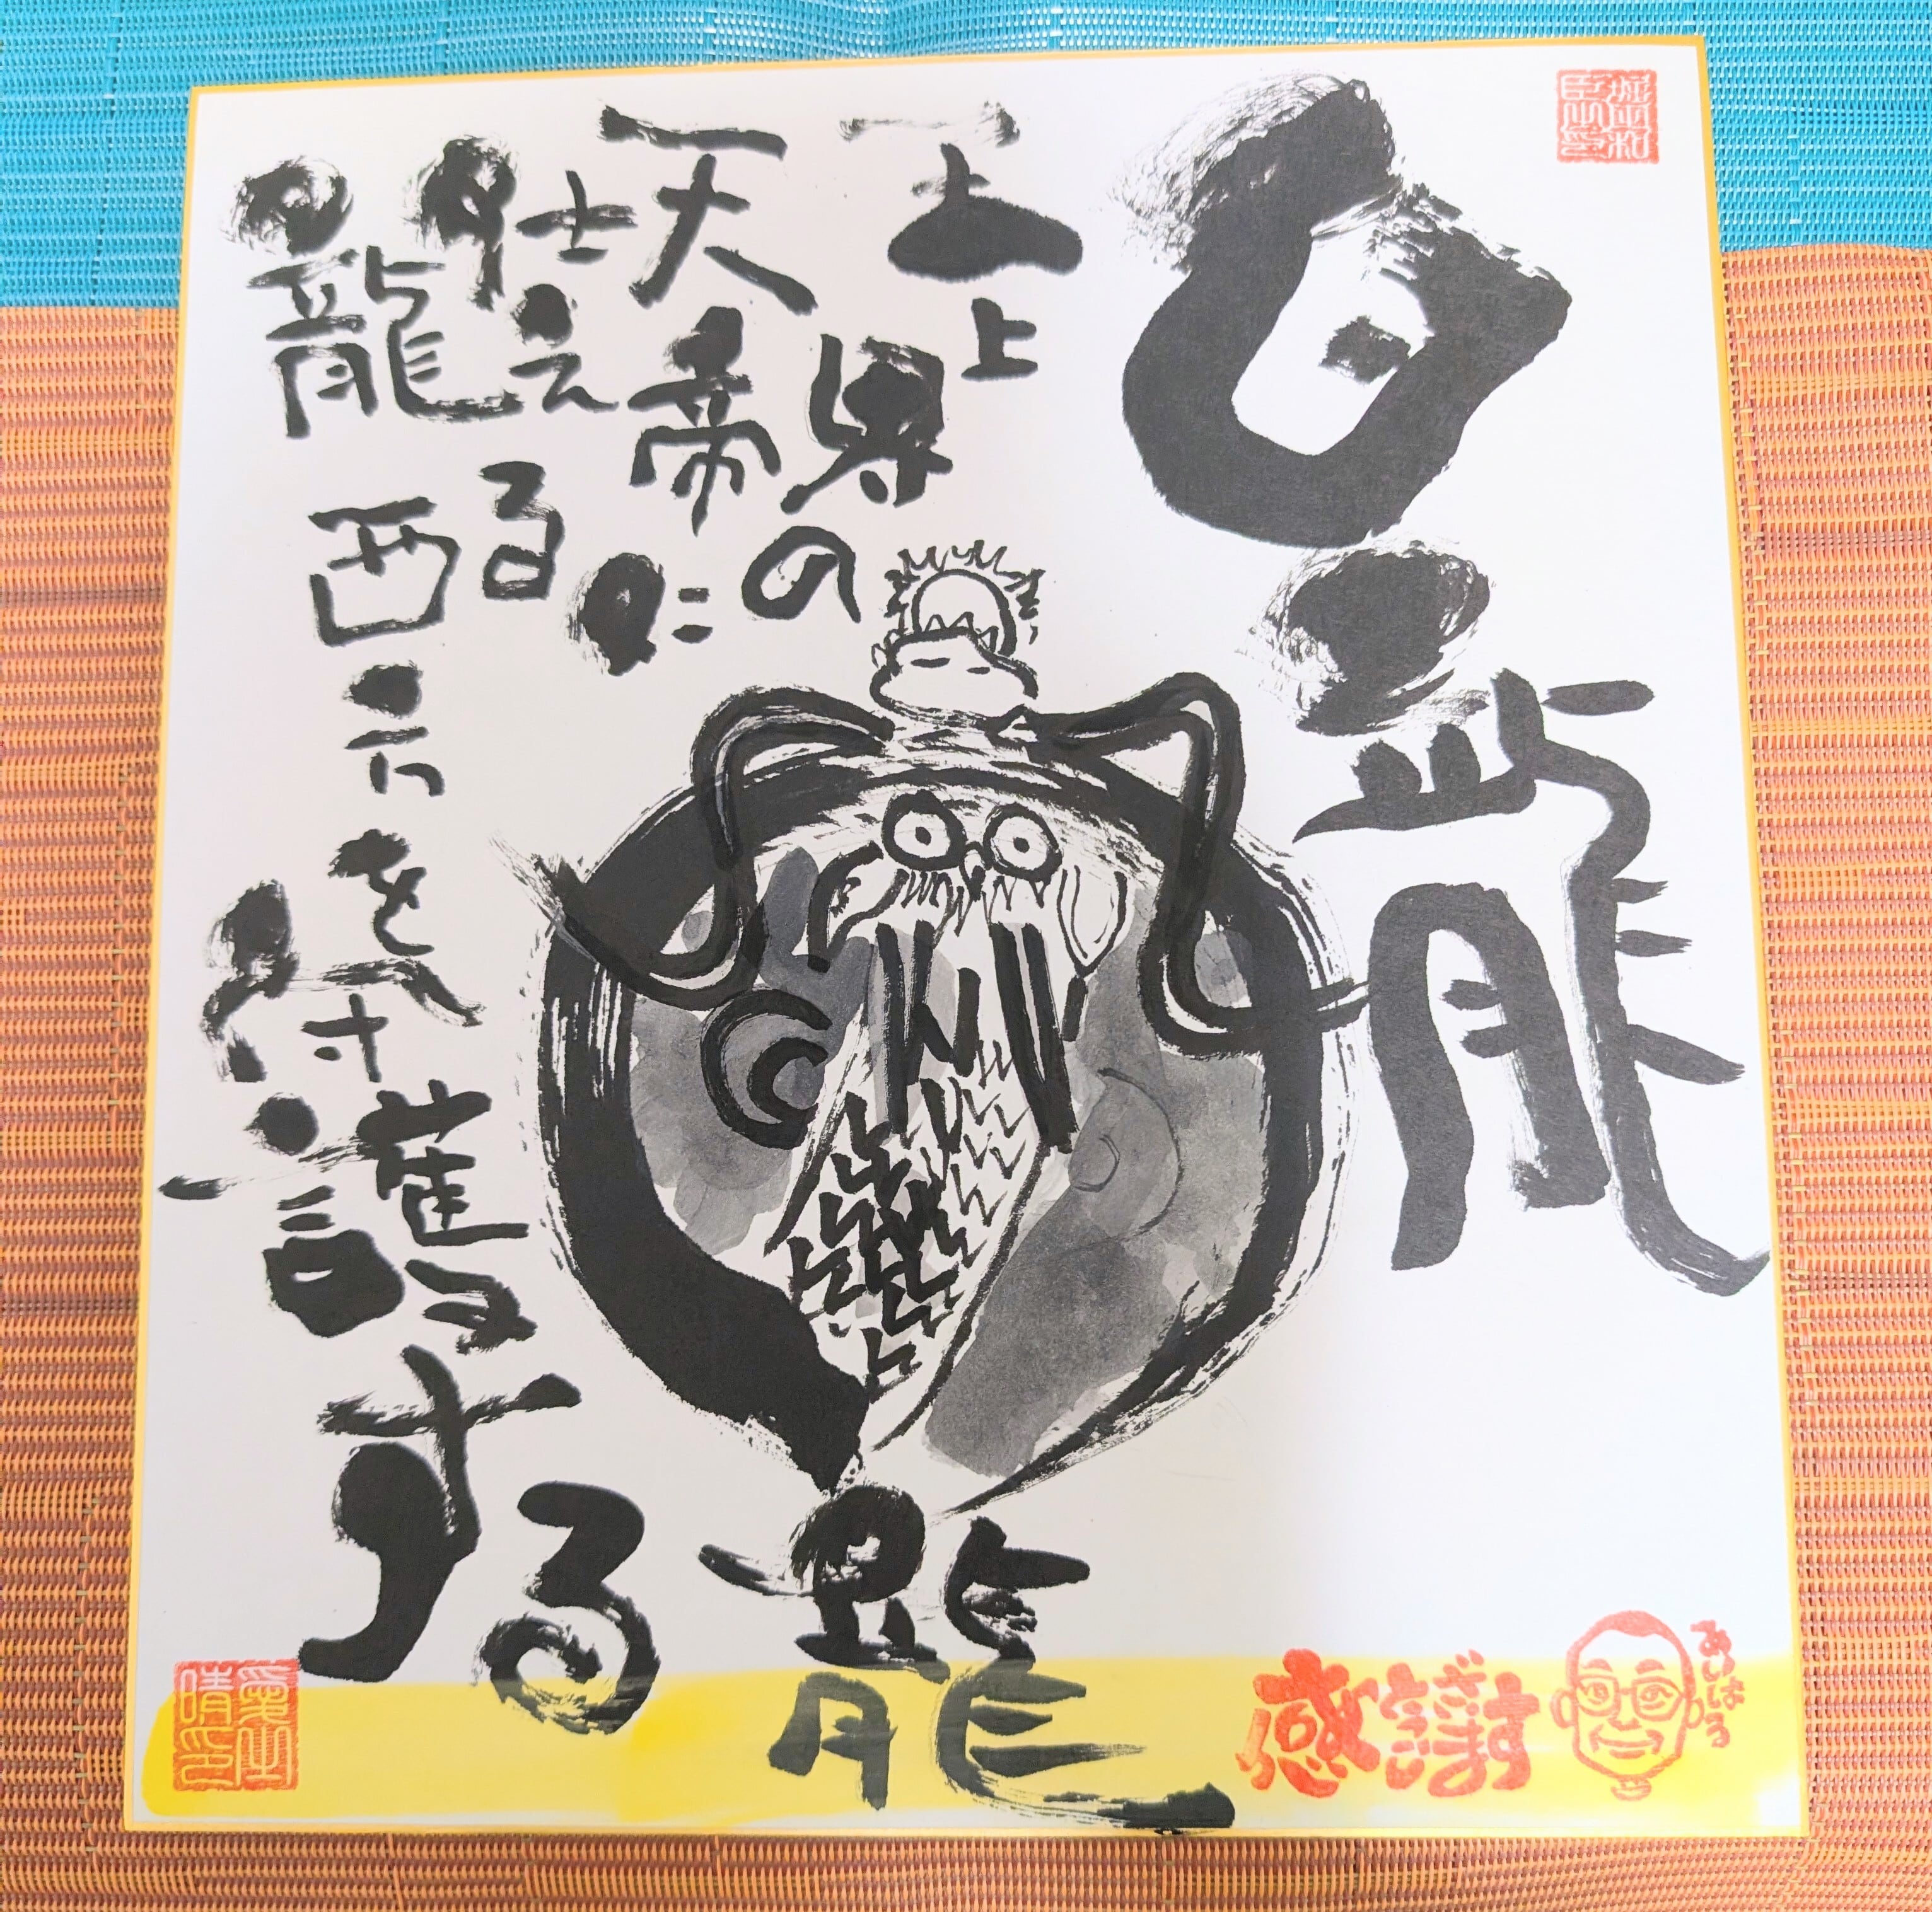 白龍
天上界の
天帝に
仕える
龍西方を守護する龍
感謝
あいはる